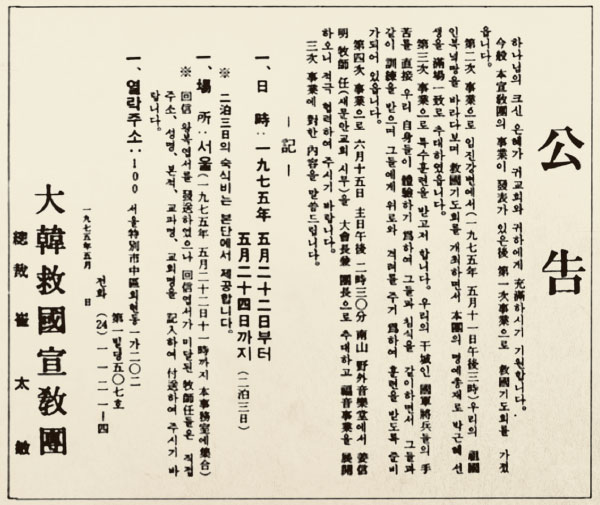 公告
하나님의 크신 은혜가 귀교회와 귀하에게 充滿하시기 기원합니다.
今般 本宣敎團의 事業이 發表가 있은後 第一次事業으로 救國기도회를 가졌
읍니다.
第二次 事業으로 임진강변에서 (一九七五年 五月十一日午後三時) 우리의 祖國
인북녘땅을 바라다보며 救國기도회를 개최하면서 本團의 명예총재로 박근혜 선
생을 滿場一致로 추대하였읍니다.
第三次 事業으로 특수훈련을 받고저 합니다. 우리의 干城인 國軍將兵들의 手
苦를 直接 우리 自身들이 體驗하기 爲하여 그들과 침식을 같이하면서 그들과
같이 訓練을 받으며 그들에게 위로와 격려를 주기 爲하여 훈련을 받도록 준비
가되어 있읍니다.
第四次 事業으로 六月十五日 主日午後 二時三○分 南山 野外音樂堂에서 姜信
明 牧師任 (새문안교회 시무)을 大會長兼 團長으로 추대하고 福音事業을 展開
하오니 적극 협력하여 주시기 바랍니다.
三次 事業에 對한 內容을 말씀드립니다.
─記─
一、日時:一九七五年 五月二十二日부터
五月二十四日까지 (二泊三日)
※ 二泊三日의 숙식비는 본단에서 제공합니다.
一、場所:서울 (一九七五年 五月二十二日十一時까지 本事務室에集合)
※ 回信 왕복엽서를 發送하였으나 回信엽서가 미달된 牧師任들은 직접
주소, 성명, 본적, 교파명, 교회명을 記入하여 付送하여 주시기 바
랍니다.
一、열락주소:100 서울特別市中區회현동一가二○二
第一빌딩五○七호
전화 (24) 一一二一─四
一九七五年五月 日
大韓救國宣敎團
總裁 崔太敏